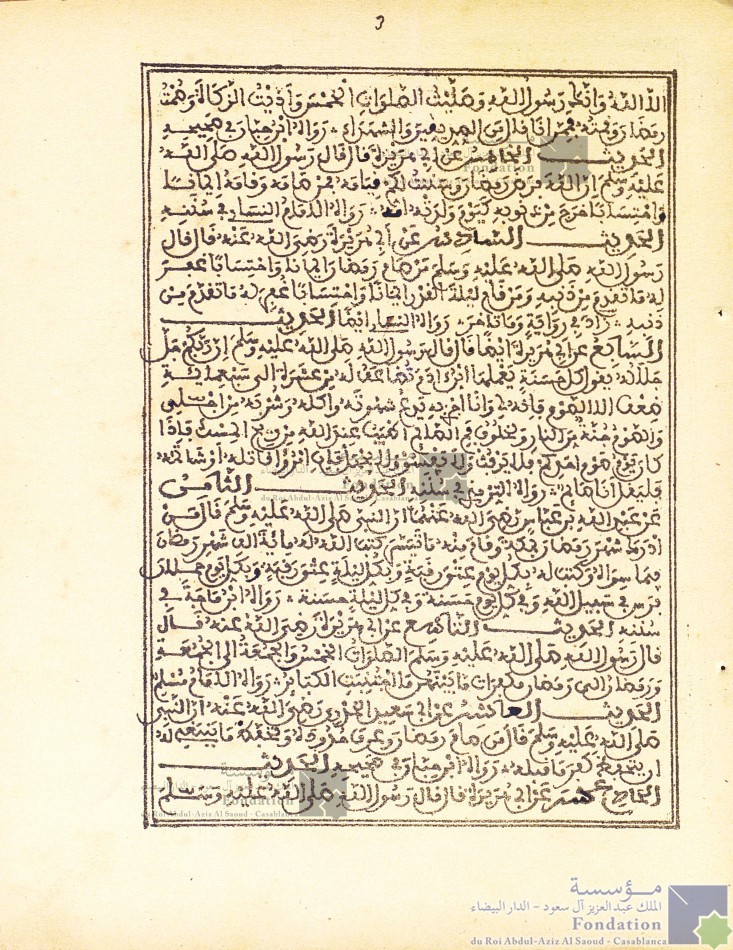 3
الا الله وانك رسول الله وصليت الصلوات الخمس وأديت الزكاة وصمت
رمضان وقمته فممن أنا قال من الصديقين والشهداء رواه ابن حبان في صحيحه
الحديث الخامس عن أبي هريرة قال قال رسول الله صلى الله
عليه وسلم ان الله فرض رمضان وسننت لكم قيامه فمن صامه وقامه إيمانا
واحتسابا خرج من ذنوبه كيوم ولدته امه رواه الامام النسائي في سننه
الحديث السادس عن أبي هريرة رضي الله عنه قال قال
رسول الله صلى الله عليه وسلم من صام رمضان إيمانا واحتسابا غفر
له ما تقدم من ذنبه ومن قام ليلة القدر إيمانا واحتسابا غفر له ما تقدم من
ذنبه زاد في رواية وما تأخر رواه النسائي ايضا الحديث
السابع عن أبي هريرة ايضا قال قال رسول الله صلى الله عليه وسلم ان ربكم جل
جلاله يقول كل حسنة يعملها ابن آدم تضاعف له من عشرة الى سبعمائة
ضعف الا الصوم فانه لي وانا اجزي به يدع شهوته وأكله وشربه من اجلي
والصوم جنة من النار ولخلوف فم الصائم أطيب عند الله من ريح المسك فإذا
كان يوم صوم احدكم فلا يرفث ولا يفسق ولا يجهل فإن امرؤ قاتله او شاتمه
فليقل انا صائم رواه الترمذي في سننه الحديث الثامن
عن عبد الله بن عباس رضي الله عنهما ان النبي صلى الله عليه وسلم قال من
ادرك شهر رمضان بمكة وقام منه ما تيسر كتب الله له مائة الف شهر رمضان
فيما سواه وكتب له بكل يوم عتق رقبة وبكل ليلة عتق رقبة وبكل يوم حملان
فرس في سبيل الله وفي كل يوم حسنة وفي كل ليلة حسنة رواه ابن ماجة في
سننه الحديث التاسع عن أبي هريرة رضي الله عنه قال
قال رسول الله صلى الله عليه وسلم الصلوات الخمس والجمعة الى الجمعة
ورمضان الى رمضان مكفرات ما بينهن ما اجتنبت الكبائر رواه الامام مسلم
الحديث العاشر عن أبي سعيد الخدري رضي الله عنه ان النبي
صلى الله عليه وسلم قال من صام رمضان وعرف حدوده وتحفظ ما ينبغي له
ان يتحفظ كفر ما قبله رواه ابن حبان في صحيحه الحديث
الحادي عشر عن أبي هريرة قال قال رسول الله صلى الله عليه وسلم
مؤسسة
الملك عبد العزيز آل سعود - الدار البيضاء
Fondation
du Roi Abdul-Aziz Al Saoud - Casablanca